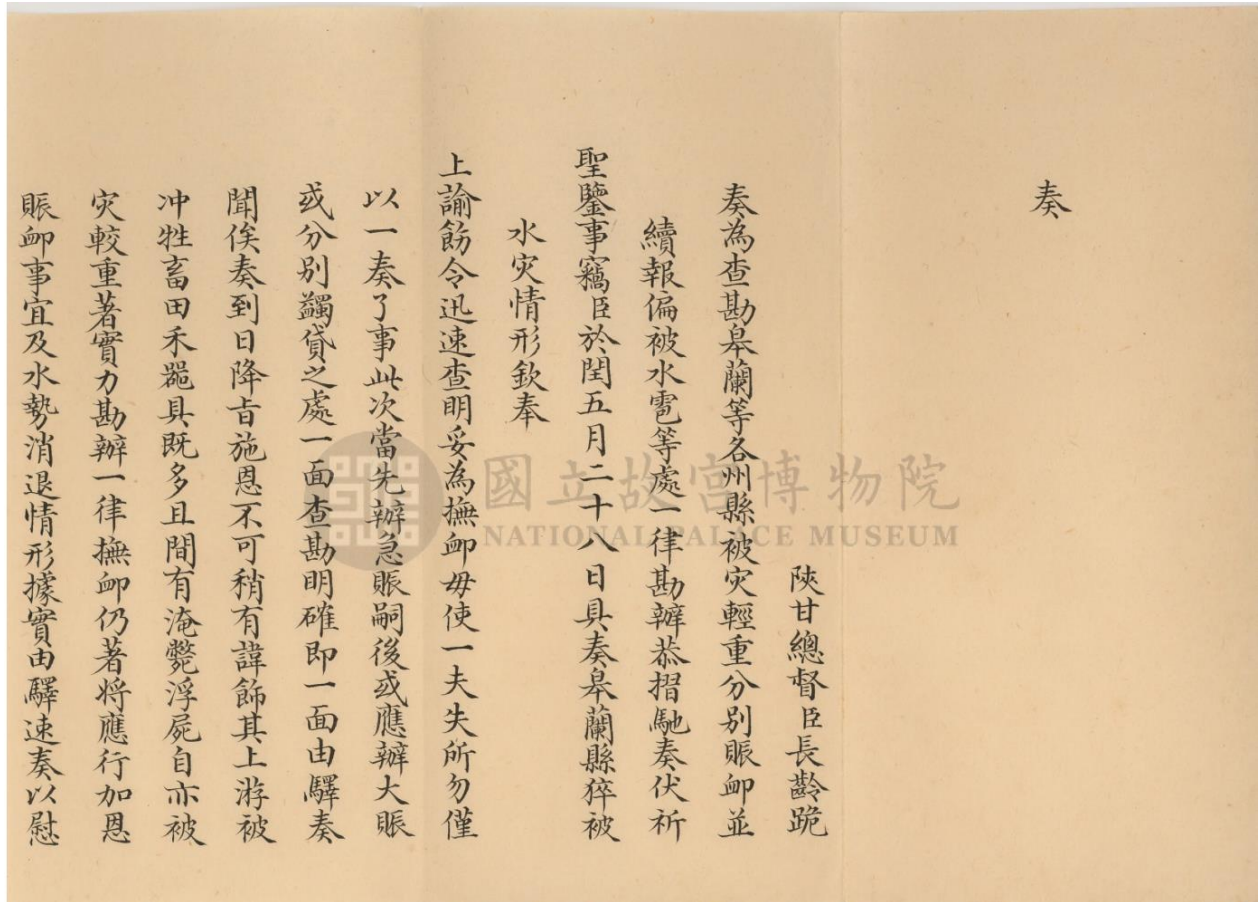 奏
陝甘總督臣長齡跪
奏為查勘皋蘭等各州縣被灾輕重分別賑卹並
續報偏被水雹等處一律勘辦恭摺馳奏伏祈
聖鑒事竊臣於閏五月二十八日具奏皋蘭縣猝被
水灾情形欽奉
上諭飭令迅速查明妥為撫卹毋使一夫失所勿僅
以一奏了事此次當先辦急賑嗣後或應辦大賑
或分別蠲貸之處一面查勘明確即一面由驛奏
聞俟奏到日降旨施恩不可稍有諱飾其上游被
冲牲畜田禾噐具既多且間有淹斃浮屍自亦被
灾較重著實力勘辦一律撫卹仍著将應行加恩
賑卹事宜及水勢消退情形據實由驛速奏以慰
國立故宮博物院
NATIONAL PALACE MUSEUM